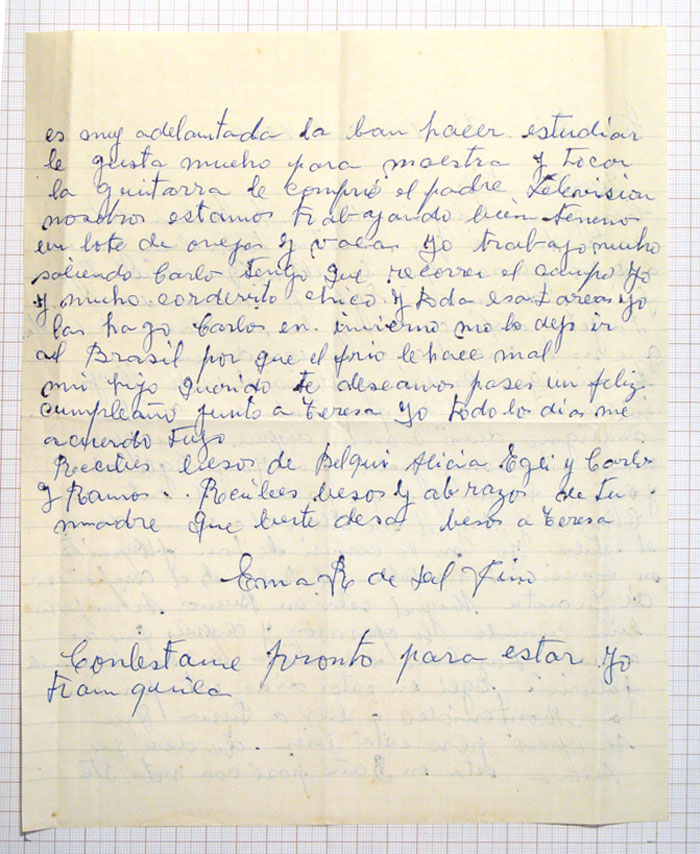 es muy adelantada la ban hacer estudiar
le gusta mucho para maestra y tocar
la guitarra le compró el padre Television
nosotros estamos trabajando bien tenemo
un lote de ovejas y vacas yo trabajo mucho
saliendo Carlo tengo que recorrer el campo yo
y mucho corderito chico y toda esa tareas yo
las hago Carlos en invierno no lo dejo ir
al Brasil por que el frio le hace mal
mi hijo querido te deseamos pases un feliz
cumpleaño junto a Teresa yo todo los días me
acuerdo tuyo
Recibes besos de Belqui Alicia Egli y Carlos
y Ramos.. Recibes besos y abrazos de tu
madre que berte desa besos a Teresa
Ema R de
Contestame pronto para estar yo
tranquila